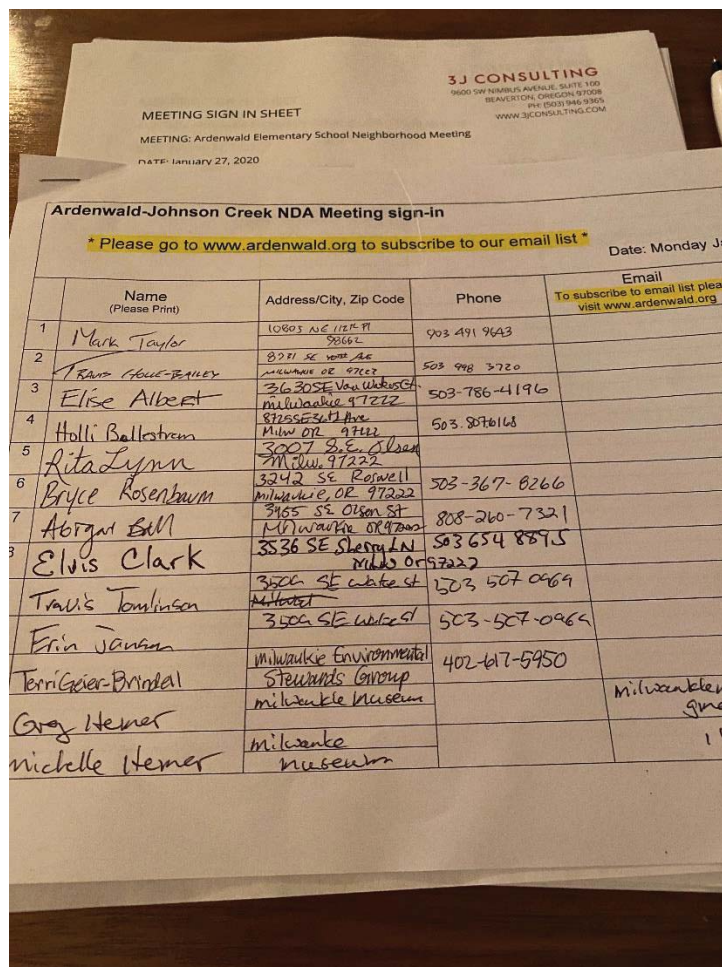 3J CONSULTING
9600 SW NIMBUS AVENUE, SUITE 100
BEAVERTON, OREGON 97008
PH: (503) 946 9365
WWW.3JCONSULTING.COM
MEETING SIGN IN SHEET
MEETING: Ardenwald Elementary School Neighborhood Meeting
DATE: January 27, 2020
Ardenwald-Johnson Creek NDA Meeting sign-in
* Please go to www.ardenwald.org to subscribe to our email list *
Date: Monday
Name
(Please Print)
Address/City, Zip Code
Phone
Email
To subscribe to email list
visit www.ardenwald.org
1 Mark Taylor
10803 NE 112th Pl
98662
903 491 9643
2 Travis
MILWAUKIE OR 97222
503 998 3720
3 Elise Albert
3630 SE Van Water Ct.
milwaukie 97222
503-786-4196
4 Holli Ballestrem
8725 SE 36th Ave
Milw OR 97222
503.8076168
5 Rita Lynn
3007 S.E. Olsen
Milw. 97222
6 Bryce Rosenbaum
3242 SE Roswell
milwaukie, OR 97222
503-367-8266
7 Abigail Bell
3465 SE Olsen St
Milwaukie OR 97222
808-260-7321
Elvis Clark
3536 SE Sherry LN
Milw Or 97222
503 654 8895
Travis Tomlinson
SE wake st
503 507 0969
Erin Janson
SE wake st
503-507-0969
Terri Geier-Brindell
milwaukie Environmental
Stewards Group
402-617-5950
Greg Hemer
milwaukie museum
Michelle Hemer
milwaukie
museum